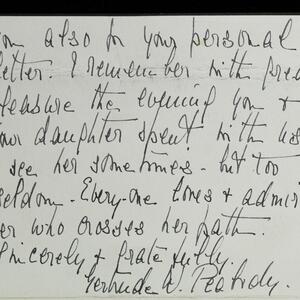 you also for your personal
letter. I remember with great
pleasure the evening you &
your daughter spent with us
see her sometimes - but too
seldom. Every-one loves & admir
her who crosses her path.
Sincerely & gratefully.
Gertrude W. Peabody.